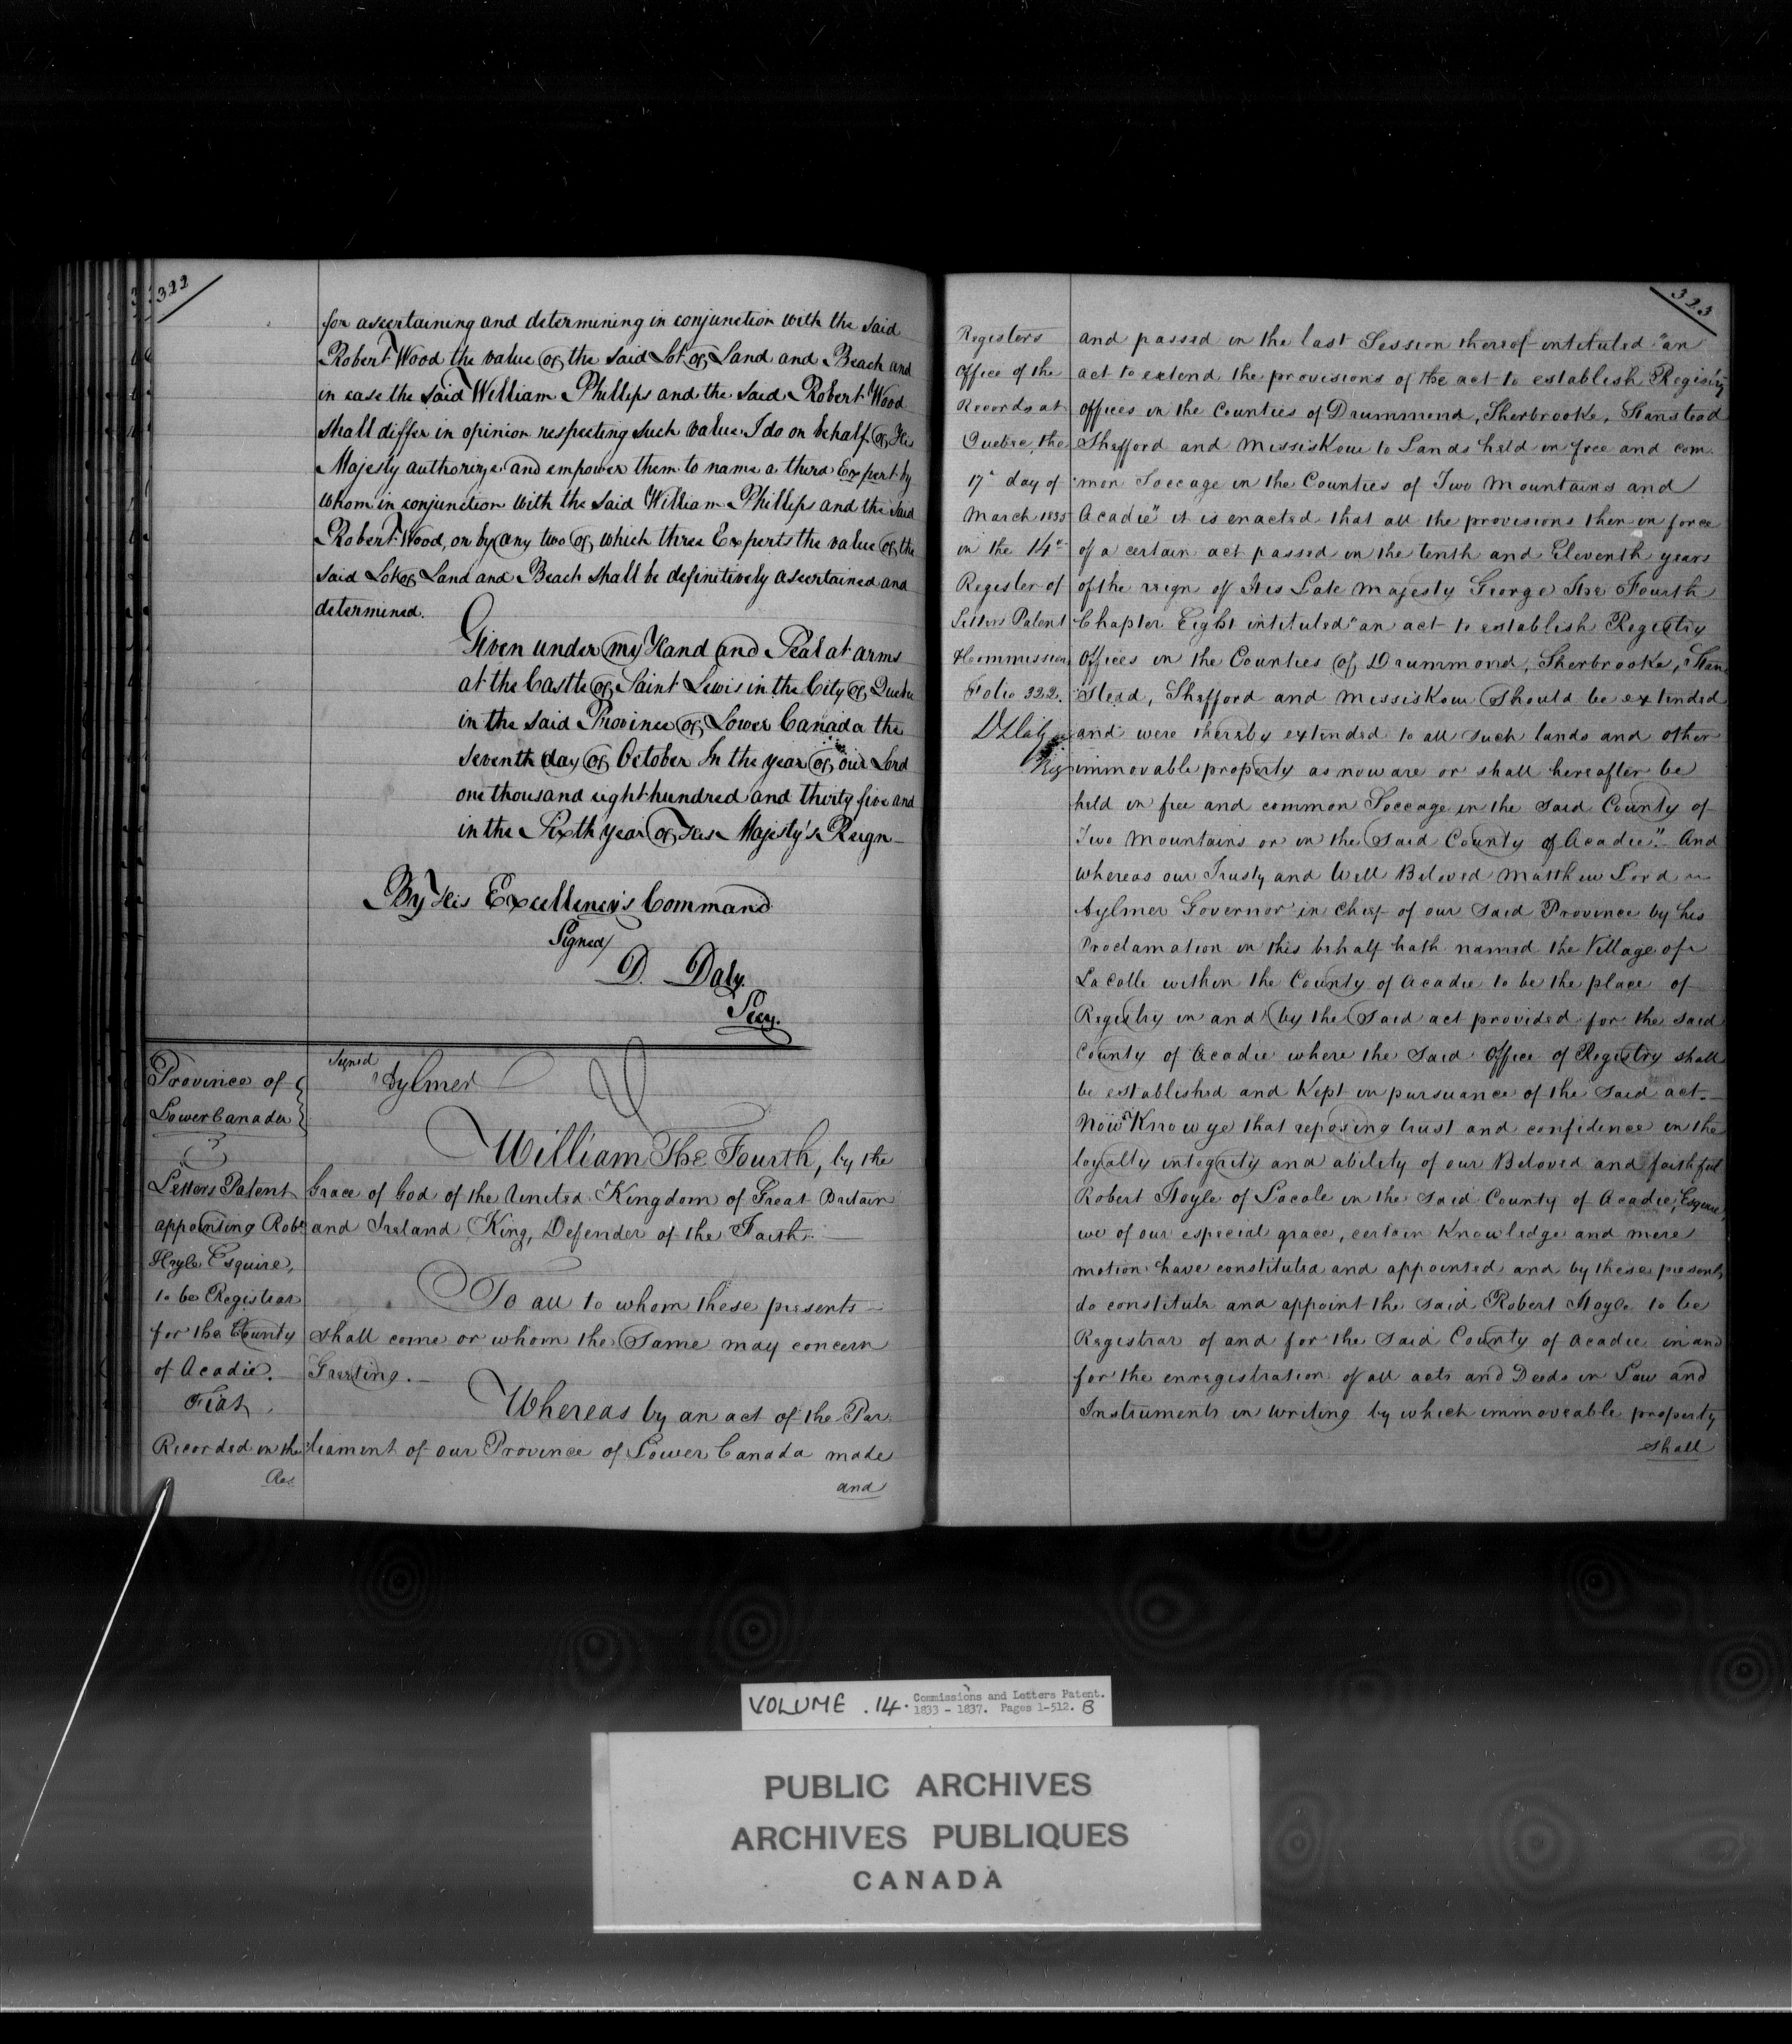 322
for ascertaining and determining in conjunction with the said
Robert Wood the value of the said Lot of Land and Beach and
in case the said William Phillips and the said Robert Wood
shall differ in opinion respecting such value I do on behalf of His
Majesty authorize and empower them to name a third Expert by
whom in conjunction with the said William Phillips and the said
Robert Wood, or by any two of which three Experts the value of the
said Lot of Land and Beach shall be definitively ascertained and
determined.
Given under my Hand and Seal at arms
at the Castle of Saint Lewis in the City of Quebec
in the said Province of Lower Canada the
seventh day of October In the year of our Lord
one thousand eight hundred and thirty five and
in the Sixth year of His Majesty's Reign
By His Excellency's Command
Signed/
D. Daly.
Secy.
Province of
Lower Canada
Letters Patent
appointing Robt
Hoyle Esquire,
to be Registrar
for the County
of Acadie.
Fiat
Recorded in the
Signed
Aylmer
William The Fourth, by the
Grace of God of the United Kingdom of Great Britain
and Ireland King, Defender of the Faith.
To all to whom these presents
shall come or whom the Same may concern
Greeting.
Whereas by an act of the Par
liament of our Province of Lower Canada made
and
323
Registers
Office of the
Records at
Quebec, the
17th day of
March 1835
in the 14th
Register of
Letters Patent
& Commissions
Folio 322.
D Daly
Reg
and passed in the last Session thereof intituled "an
act to extend the provisions of the act to establish Registry
offices in the Counties of Drummond, Sherbrooke, Stanstead
Shefford and Missiskoui to Lands held in free and com
mon Soccage in the Counties of Two Mountains and
Acadie" it is enacted that all the provisions then in force
of a certain act passed in the tenth and Eleventh years
of the reign of His Late Majesty George The Fourth
Chapter Eight intituled "an act to establish Registry
Offices in the Counties of Drummond, Sherbrooke, Stan
stead, Shefford and Missiskoui should be extended
and were thereby extended to all such lands and other
immovable property as now are or shall hereafter be
held in free and common Soccage in the said County of
Two Mountains or in the Said County of Acadie". And
whereas our Trusty and Well Beloved Matthew Lord
Aylmer Governor in Chief of our said Province by his
Proclamation in this behalf hath named the Village of
Lacolle within the County of Acadie to be the place of
Registry in and by the Said act provided for the said
County of Acadie where the Said Office of Registry shall
be established and Kept in pursuance of the Said act.
Now Know ye that reposing trust and confidence in the
loyalty integrity and ability of our Beloved and faithful
Robert Hoyle of Lacole in the said County of Acadie, Esquire,
we of our especial grace, certain Knowledge and mere
motion have constituted and appointed and by these presents
do constitute and appoint the said Robert Hoyle to be
Registrar of and for the said County of Acadie in and
for the enregistration of all acts and Deeds in Law and
Instruments in writing by which immoveable property
shall
VOLUME . 14. Commissions and Letters Patent.
1833 - 1837. Pages 1-512. B
PUBLIC ARCHIVES
ARCHIVES PUBLIQUES
CANADA